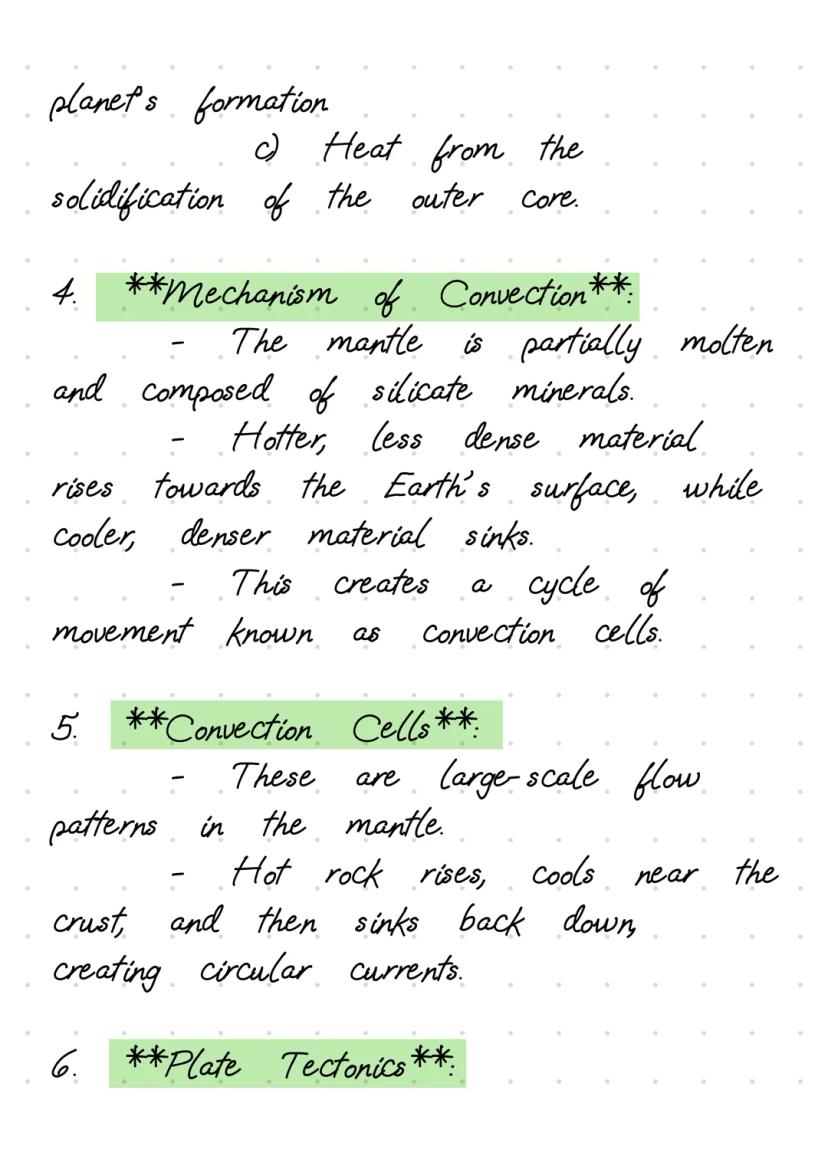 planet's formation
c) Heat from the
solidification of the outer core.
4. **Mechanism of Convection**:
- The mantle is partially molten
and composed of silicate minerals.
- Hotter, less dense material
rises towards the Earth's surface, while
cooler, denser material sinks.
- This creates a cycle of
movement known as convection cells.
5. **Convection Cells**:
- These are large-scale flow
patterns in the mantle.
- Hot rock rises, cools near the
crust, and then sinks back down,
creating circular currents.
6. **Plate Tectonics**: